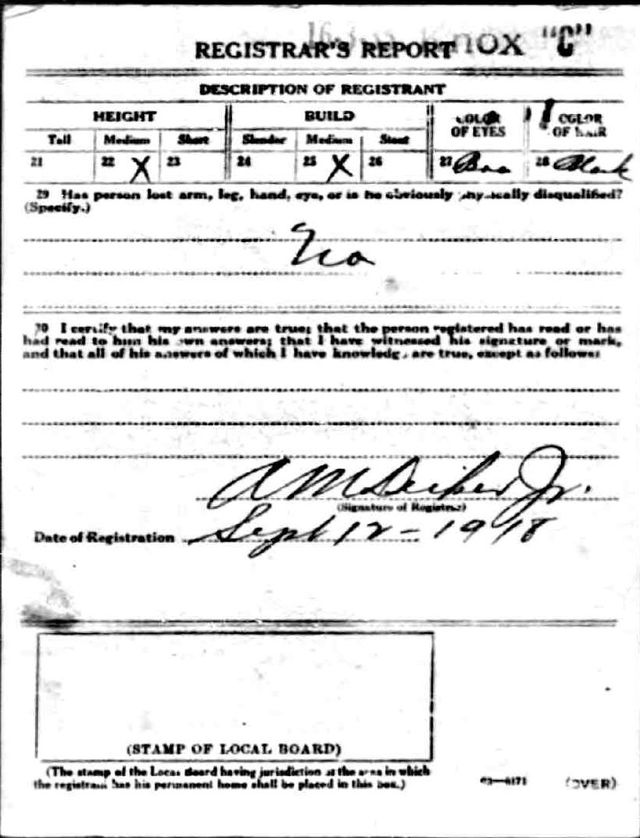 Knox "C"
REGISTRAR'S REPORT
DESCRIPTION OF REGISTRANT
HEIGHT BUILD COLOR OF EYES COLOR OF HAIR
Tall Medium Short Slender Medium Stout
21 22 X 23 24 25 X 26 27 28 Black
29 Has person lost arm, leg, hand, eye, or is he obviously physically disqualified?
(Specify.)
No
30 I certify that my answers are true; that the person registered has read or has
had read to him his own answers; that I have witnessed his signature or mark,
and that all of his answers of which I have knowledge are true, except as follows:
A M Jr.
(Signature of Registrar)
Date of Registration Sept 12-1918
(STAMP OF LOCAL BOARD)
(The stamp of the Local Board having jurisdiction of the area in which
the registrant has his permanent home shall be placed in this box.)
03—6171 (OVER)